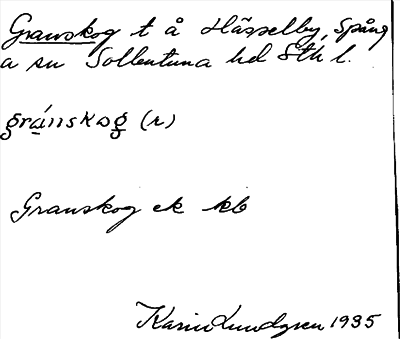 Granskog t å Hässelby, Spång
a sn Sollentuna hd Sth l.
gránskog (r)
Granskog ek kb
Karin Lundgren 1935